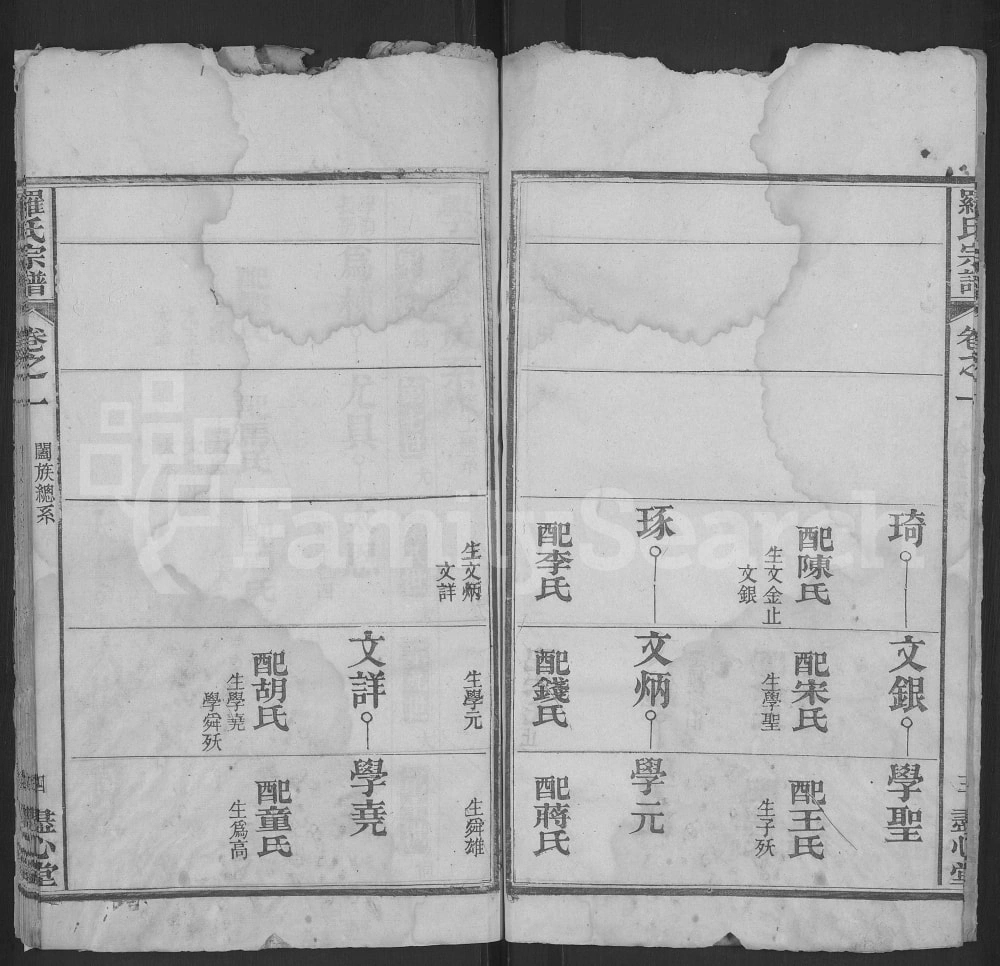 羅氏宗譜
卷之一
三
盡心堂
琦
配陳氏
生文金止
文銀
琢
配李氏
文銀
配宋氏
生學聖
文炳
配錢氏
學聖
配王氏
生子殀
學元
配蔣氏
生文炳
文詳
生學元
文詳
配胡氏
生學堯
學舜殀
生舜雄
學堯
配童氏
生爲高
羅氏宗譜
卷之一
闔族總系
四
盡心堂
FamilySearch